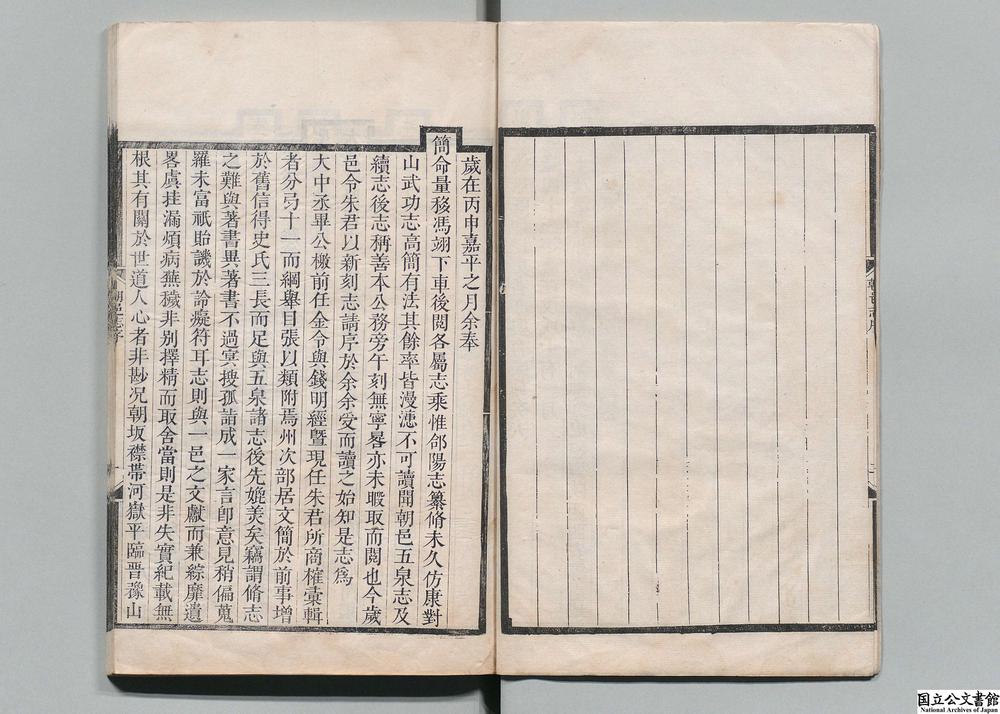 歲在丙申嘉平之月余奉
簡命量移馮翊下車後閱各屬志乘惟郃陽志纂脩未久仿康對
山武功志高簡有法其餘率皆漫漶不可讀聞朝邑五泉志及
續志後志稱善本公務旁午刻無寧晷亦未暇取而閱也今歲
邑令朱君以新刻志請序於余余受而讀之始知是志爲
大中丞畢公檄前任金令與錢明經曁現任朱君所商榷彙輯
者分㢧十一而綱舉目張以類附焉州次部居文簡於前事增
於舊信得史氏三長而足與五泉諸志後先媲美矣竊謂脩志
之難與著書異著書不過冥搜孤詣成一家言卽意見稍偏蒐
羅未富祇貽譏於詅癡符耳志則與一邑之文獻而兼綜靡遺
畧虞挂漏煩病蕪穢非别擇精而取舍當則是非失實紀載無
根其有關於世道人心者非尠况朝坂襟帶河嶽平臨晋豫山
朝邑志序
一
朝邑志序
二
国立公文書館
National Archives of Japan